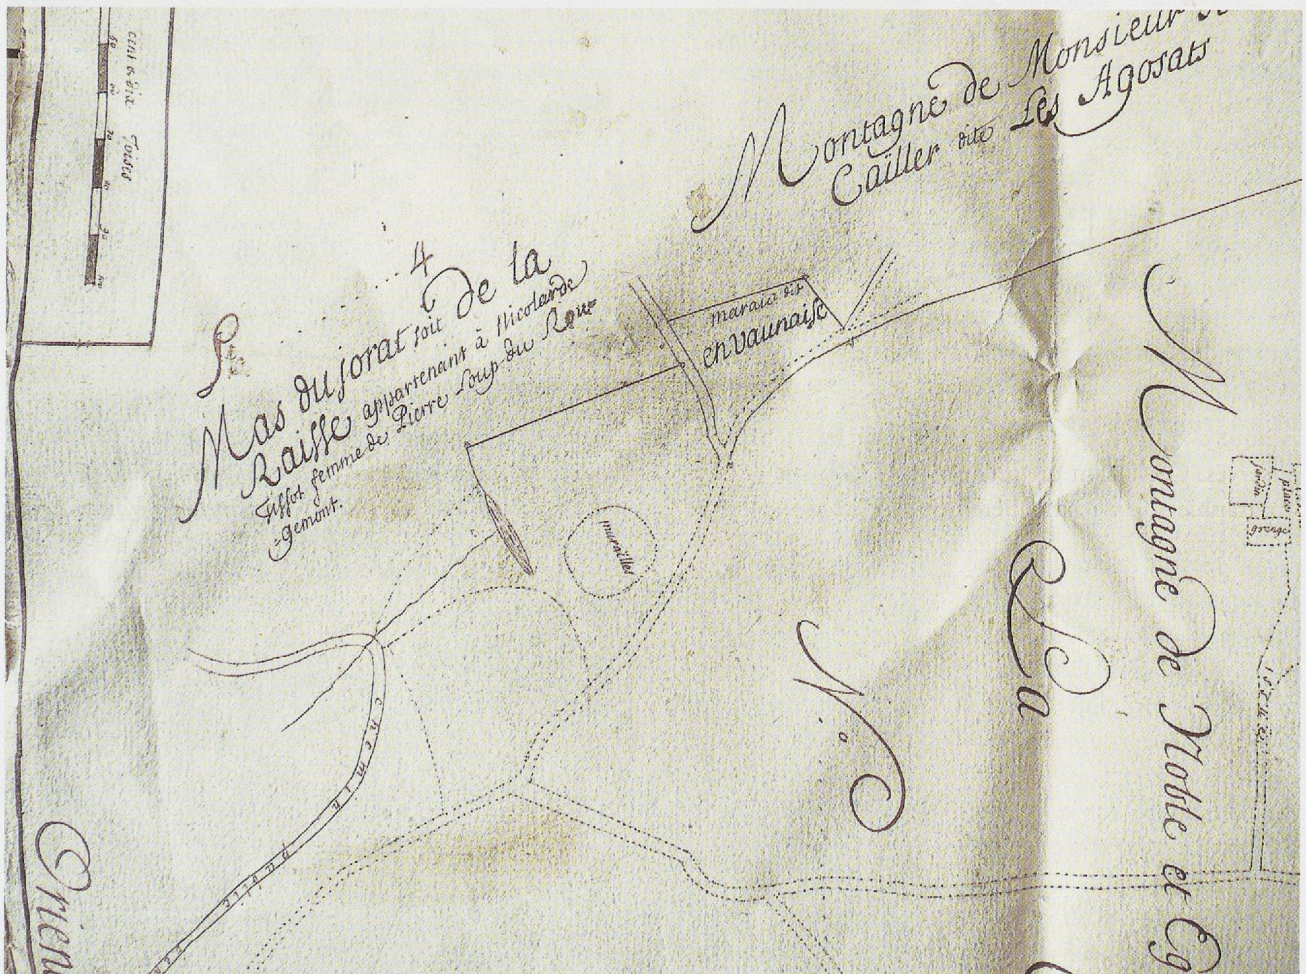 cent & dix Toises
Montagne de Monsieur
Cailler dite Les Agosats
4
Mas du jorat soit De la
Raisse appartenant à Nicolarde
Tissot femme de Pierre Loup du Rou-
-gemont.
marais dit
en Vaunaise
murailles
Montagne de Noble et Eg
place
jardin
grange
La
N.o
chemin public
Orien